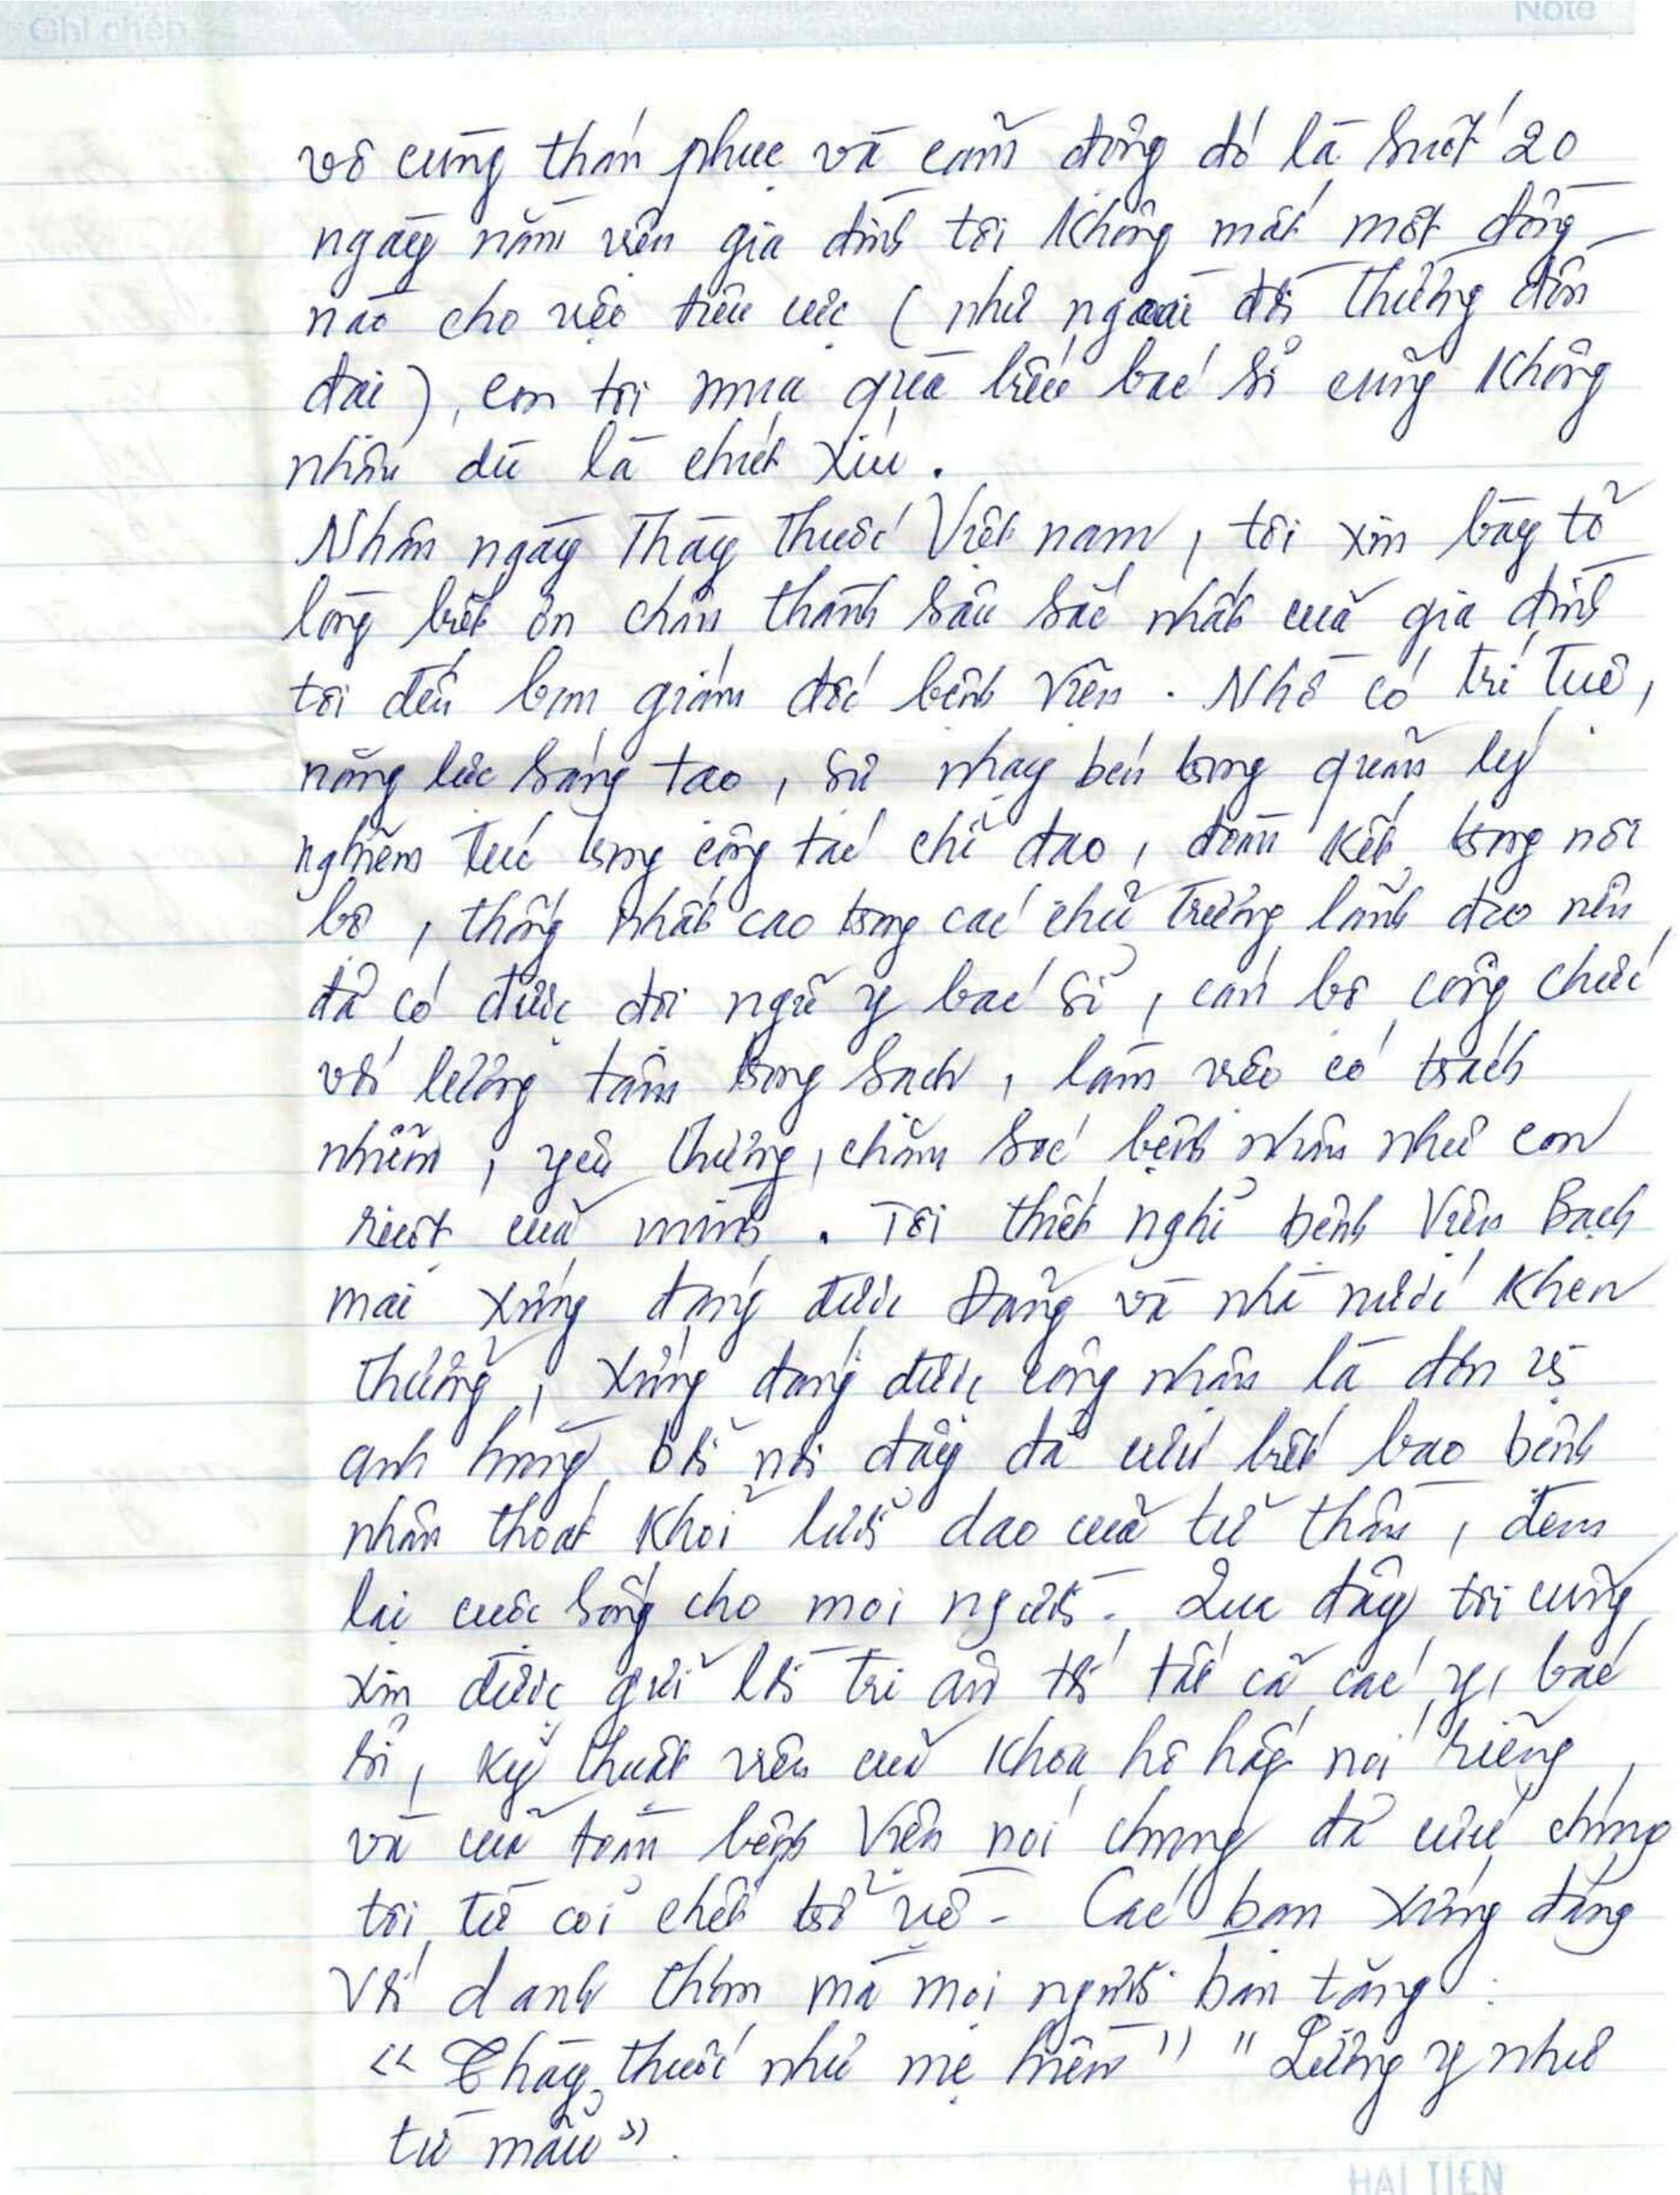 Ghi chép
Note
vô cùng thán phục và cảm động đó là suốt 20
ngày nằm viện gia đình tôi không mất một đồng
nào cho việc tiêu cực (như ngoài đời thường đồn
đại), con tôi mua quà biếu bác sĩ cũng không
nhận dù là chút xíu.
Nhân ngày Thầy thuốc Việt nam, tôi xin bày tỏ
lòng biết ơn chân thành sâu sắc nhất của gia đình
tôi đến ban giám đốc bệnh viện. Nhờ có trí tuệ,
năng lực sáng tạo, sự nhạy bén trong quản lý
nghiêm túc trong công tác chỉ đạo, đoàn kết trong nội
bộ, thống nhất cao trong các chủ trương lãnh đạo nên
đã có được đội ngũ y bác sĩ, cán bộ công chức
với lương tâm trong sạch, làm việc có trách
nhiệm, yêu thương, chăm sóc bệnh nhân như con
ruột của mình. Tôi thiết nghĩ bệnh viện Bạch
mai xứng đáng được Đảng và nhà nước khen
thưởng, xứng đáng được công nhận là đơn vị
anh hùng bởi nơi đây đã cứu biết bao bệnh
nhân thoát khỏi lưỡi dao của tử thần, đem
lại cuộc sống cho mọi người. Qua đây tôi cũng
xin được gửi lời tri ân tới tất cả các y, bác
sĩ, kỹ thuật viên của khoa hô hấp nói riêng
và của toàn bệnh viện nói chung đã cứu chúng
tôi từ cõi chết trở về - Các bạn xứng đáng
với danh thơm mà mọi người ban tặng:
"Thầy thuốc như mẹ hiền" "Lương y như
từ mẫu".
HAI TIEN